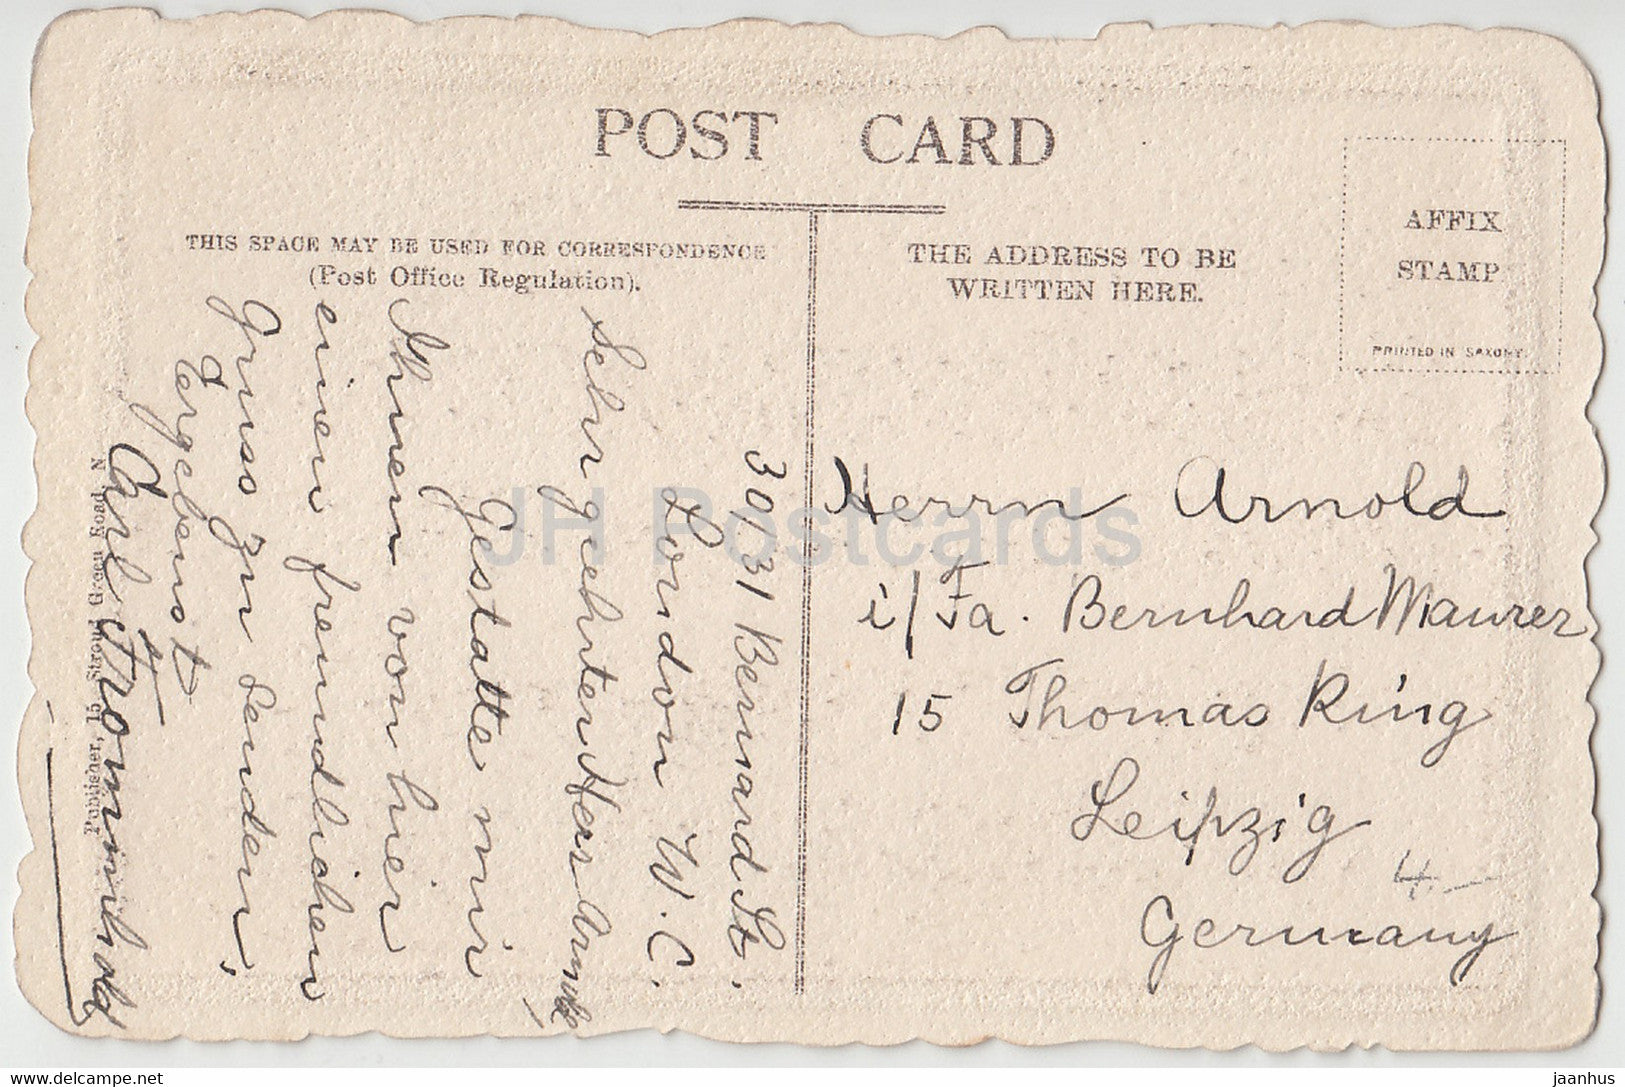 POST CARD
THIS SPACE MAY BE USED FOR CORRESPONDENCE
(Post Office Regulation).
THE ADDRESS TO BE
WRITTEN HERE.
AFFIX
STAMP
PRINTED IN SAXONY.
30/31 Bernard St.
London W.C.
Sehr geehrter Herr Arnold,
Gestatte mir
Ihnen von hier
einen freundlichen
Gruss zu senden,
Ergebenst
Carl
Publisher, 15, Stroud Green Road N
Herrn Arnold
i/Fa. Bernhard Maurer
15 Thomas Ring
Leipzig
Germany
4-
JH Postcards
jaanhus @ delcampe.net